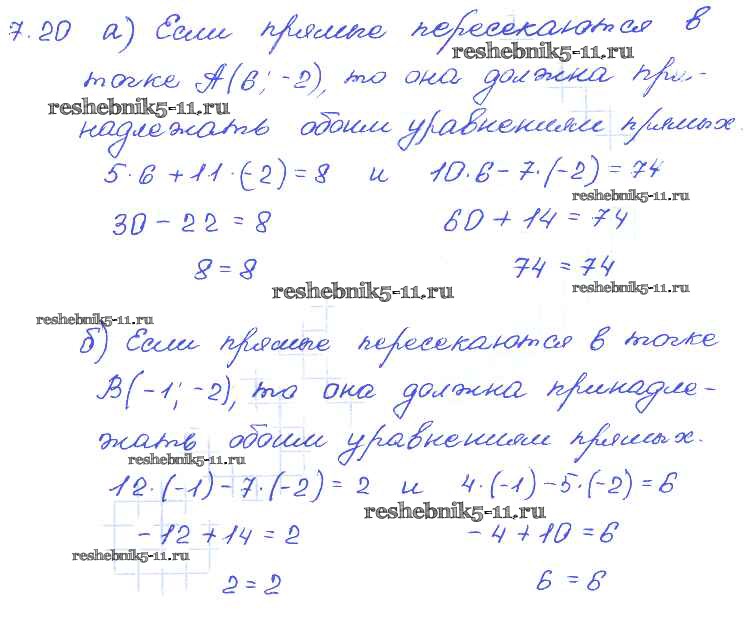 7.20 а) Если прямые пересекаются в
reshebnik5-11.ru
точке A(6; -2), то она должна при-
reshebnik5-11.ru
надлежать обоим уравнениям прямых.
5·6 + 11·(-2) = 8 и 10·6 - 7·(-2) = 74
reshebnik5-11.ru
30 - 22 = 8 60 + 14 = 74
8 = 8 74 = 74
reshebnik5-11.ru reshebnik5-11.ru
reshebnik5-11.ru
б) Если прямые пересекаются в точке
B(-1; -2), то она должна принадле-
жать обоим уравнениям прямых.
reshebnik5-11.ru
12·(-1) - 7·(-2) = 2 и 4·(-1) - 5·(-2) = 6
reshebnik5-11.ru
-12 + 14 = 2 -4 + 10 = 6
reshebnik5-11.ru
2 = 2 6 = 6